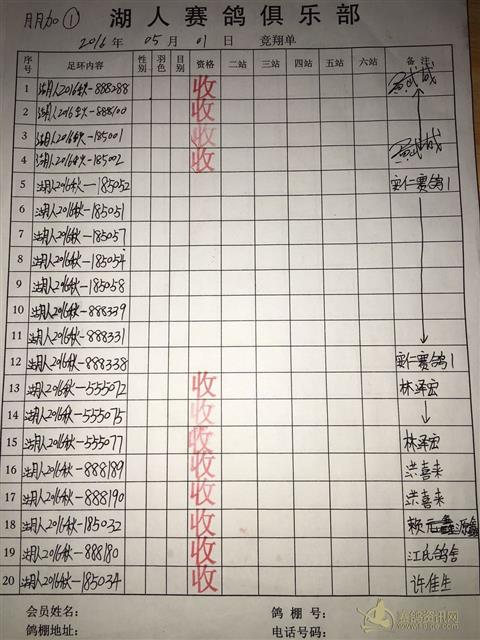 月月加 ①
湖人赛鸽俱乐部
2016 年 05 月 01 日 竞翔单
序号 足环内容 性别 羽色 目别 资格 二站 三站 四站 五站 六站 备注
1 湖人2016秋-888288 收
2 湖人2016秋-888100 收
3 湖人2016秋-185001 收
4 湖人2016秋-185002 收
5 湖人2016秋-185052 赛鸽1
6 湖人2016秋-185051
7 湖人2016秋-185057
8 湖人2016秋-185054
9 湖人2016秋-185058
10 湖人2016秋-888339
11 湖人2016秋-888331
12 湖人2016秋-888338 赛鸽1
13 湖人2016秋-555072 收 林泽宏
14 湖人2016秋-555075 收
15 湖人2016秋-555077 收 林泽宏
16 湖人2016秋-888189 收 洪喜来
17 湖人2016秋-888190 收 洪喜来
18 湖人2016秋-185032 收 赖元源
19 湖人2016秋-888180 收 江民鸽舍
20 湖人2016秋-185034 收 许佳生
会员姓名： 鸽棚号：
鸽棚地址： 电话号码：
赛鸽资讯网